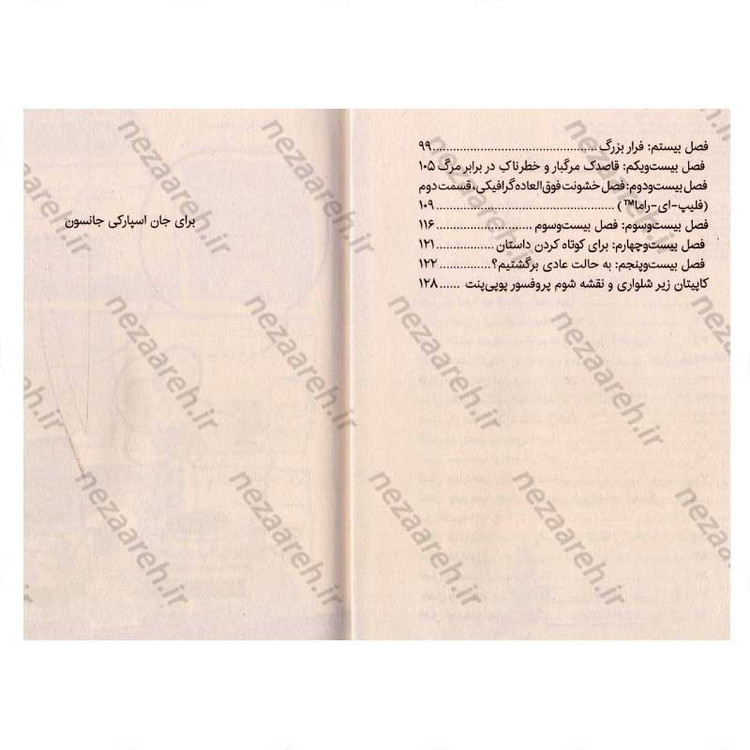 فصل بیستم: فرار بزرگ ........................................ ۹۹
فصل بیست‌ویکم: قاصدک مرگبار و خطرناکِ در برابر مرگ ۱۰۵
فصل بیست‌ودوم: فصل خشونت فوق‌العاده گرافیکی، قسمت دوم
(فلیپ-ای-راما™) ............................................ ۱۰۹
فصل بیست‌وسوم: فصل بیست‌وسوم ........................ ۱۱۶
فصل بیست‌وچهارم: برای کوتاه کردن داستان ............... ۱۲۱
فصل بیست‌وپنجم: به حالت عادی برگشتیم؟ ............... ۱۲۲
کاپیتان زیر شلواری و نقشه شوم پروفسور پوپی‌پنت ...... ۱۲۸
برای جان اسپارکی جانسون
nezaareh.ir